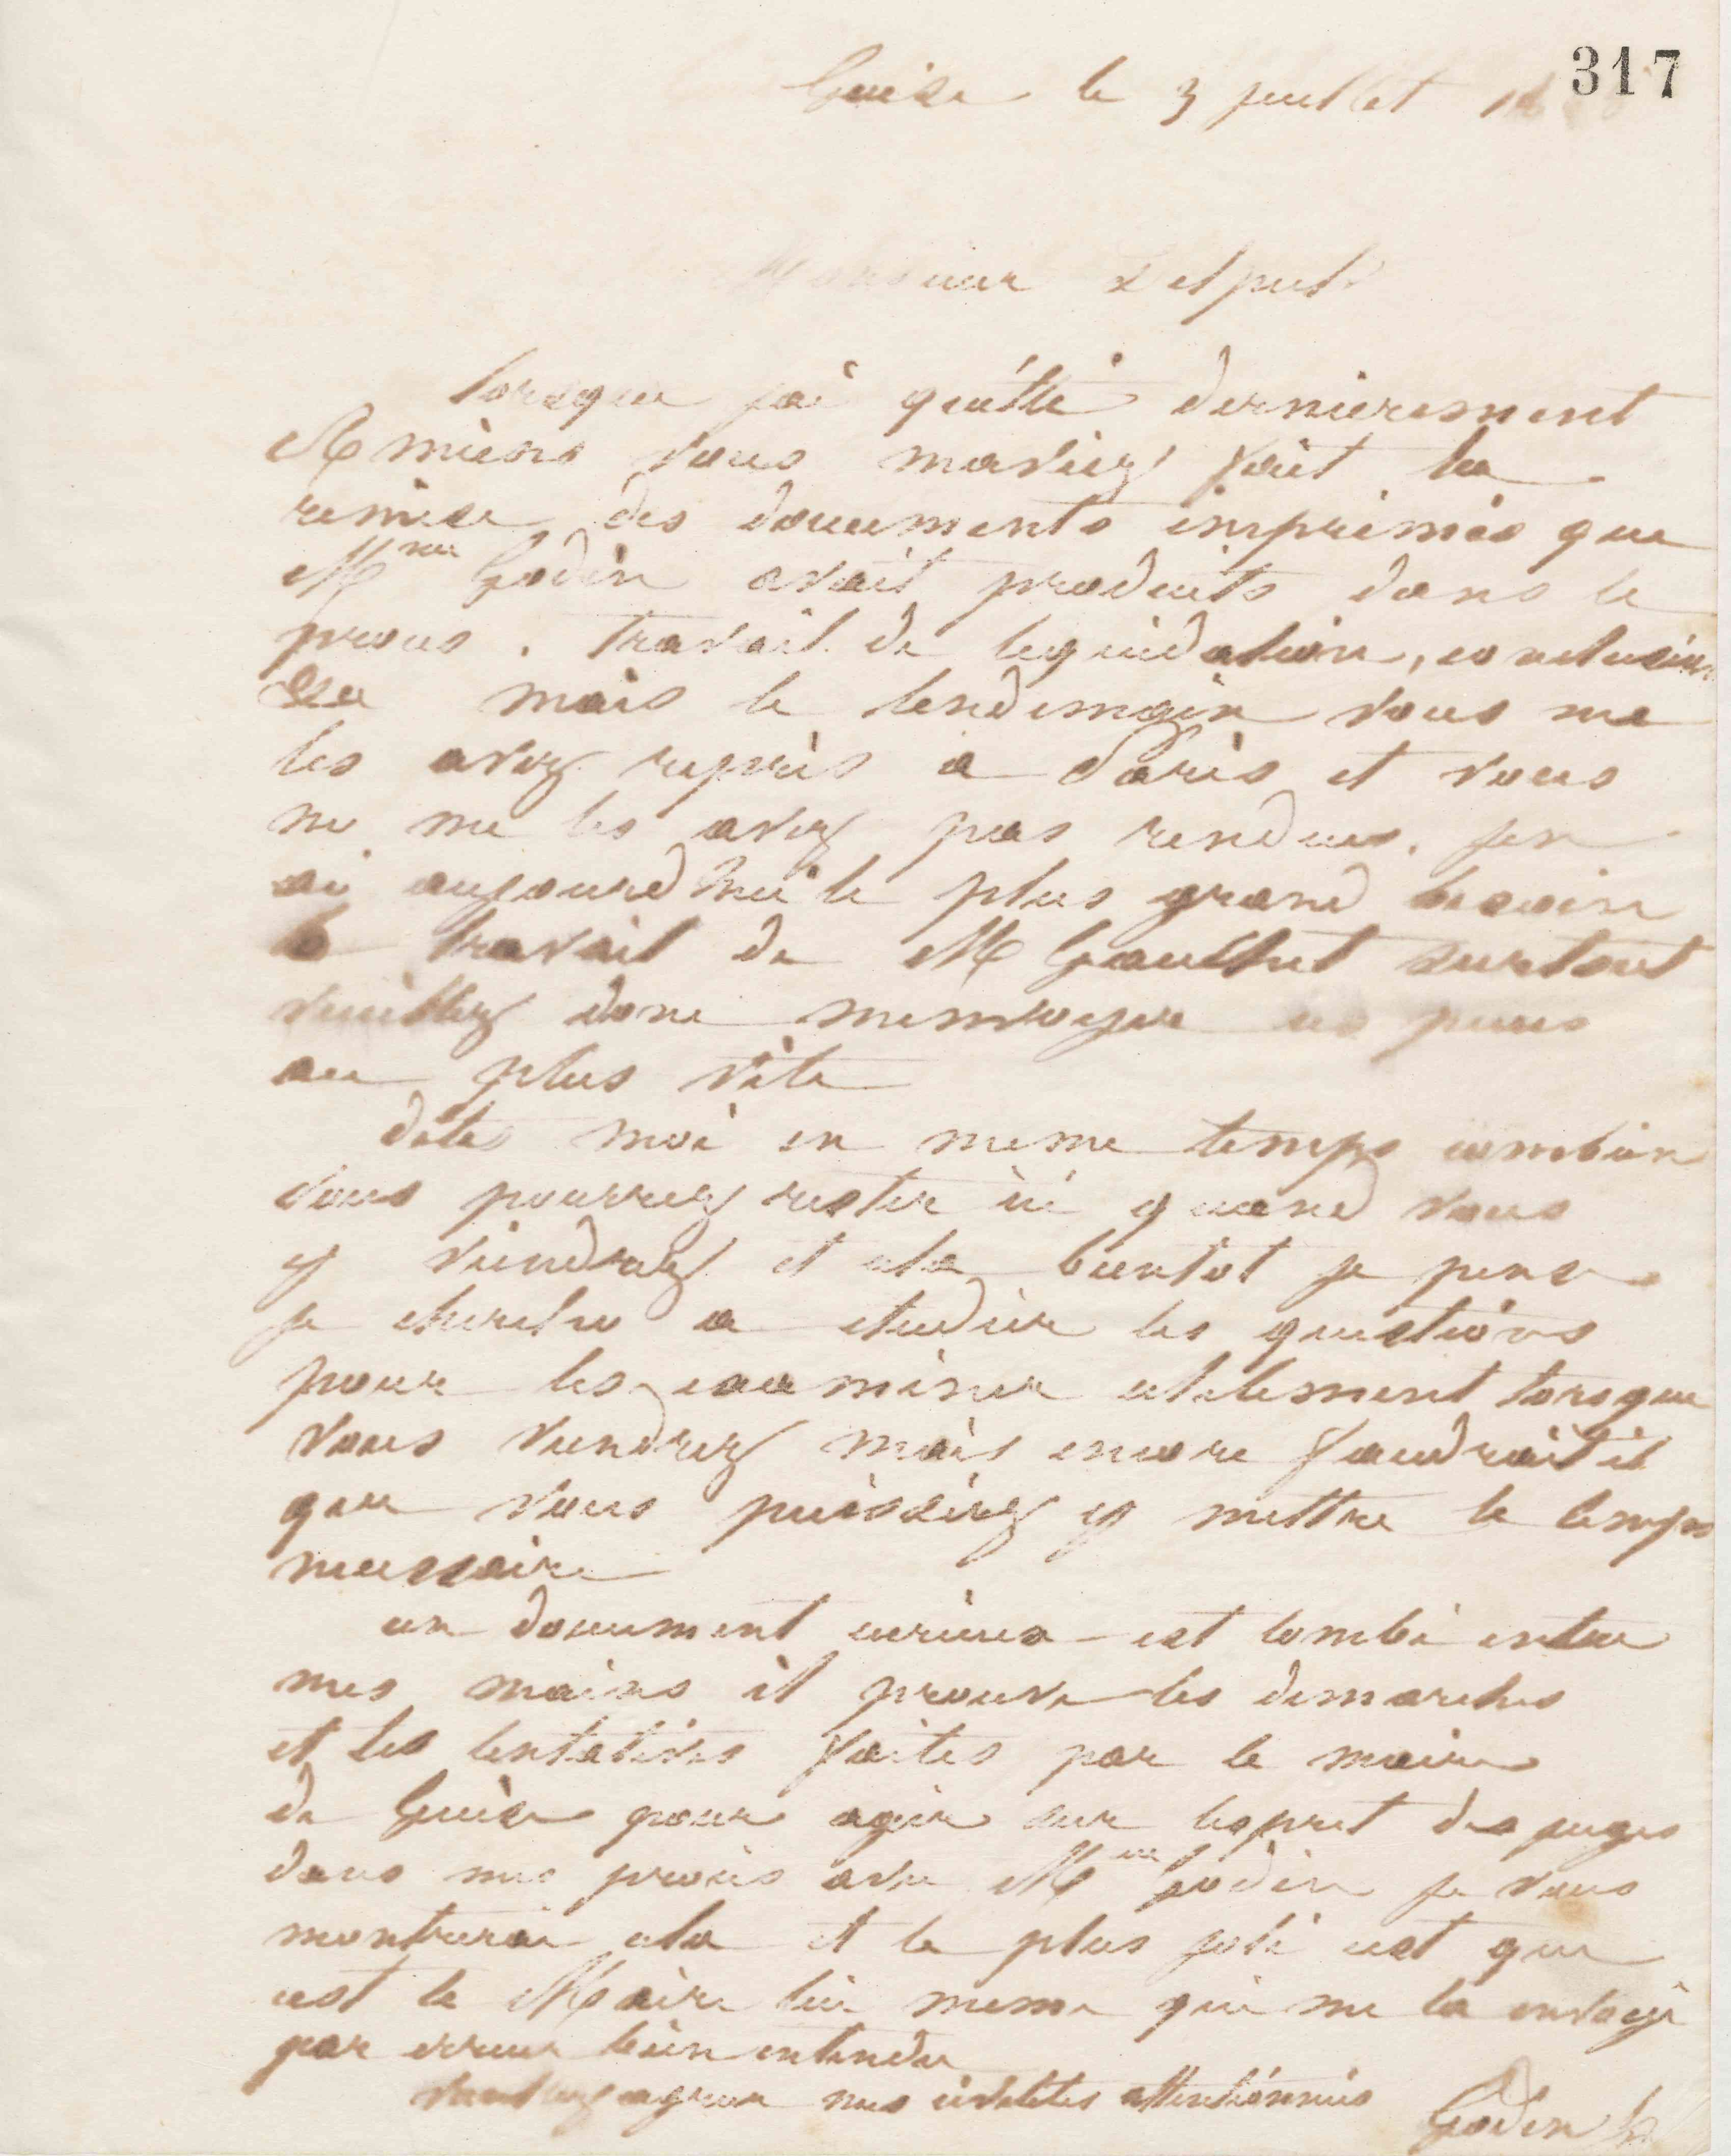 317
Guise le 3 juillet 18
Monsieur Delpech
lorsque jai quitté dernierement
Amiens vous maviez fait la
remise des documents imprimés que
Mme Godin avait produits dans le
proces. travail de liquidation, conclusion
&ca mais le lendemain vous me
les avez repris a Paris et vous
ne me les avez pas rendus. jen
ai aujourdhui le plus grand besoin
le travail de M Gauchet surtout
veuillez donc menvoyer ces pieces
au plus vite
dites moi en meme temps combien
vous pourrez rester ici quand vous
y viendrez et cela bientot je pense
je cherche a etudier les questions
pour les examiner utilement lorsque
vous viendrez mais encore faudrait il
que vous puissiez y mettre le temps
necessaire
un document curieux est tombé entre
mes mains il prouve les demarches
et les tentatives faites par le maire
de Guise pour agir sur lesprit des juges
dans mes procès avec Mme Godin je vous
montrerai cela et le plus joli cest que
cest le Maire lui meme qui me la envoyé
par erreur bien entendu
veuillez agreer mes civilités attentionnées
Godin